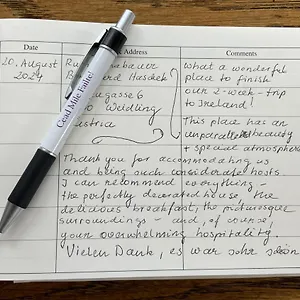 Date Address Comments
20. August
2024
Ru bauer
B rd Haschek
ugasse 6
o Weidling
ustria
Cead Mile Failte!
What a wonderful
place to finish
our 2-week-trip
to Ireland!
This place has an
unparalleled beauty
+ special atmosphere
Thank you for accommodating us
and being such considerate hosts.
I can recommend everything -
the perfectly decorated house, the
delicious breakfast, the picturesque
surroundings - and, of course,
your overwhelming hospitality.
Vielen Dank, es war sehr schön